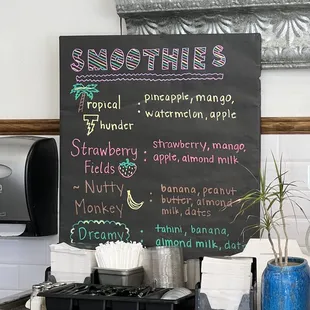 SMOOTHIES
Tropical : pineapple, mango,
Thunder watermelon, apple
Strawberry : strawberry, mango,
Fields apple, almond milk
~ Nutty : banana, peanut
Monkey butter, almond
milk, dates
Dreamy : tahini, banana,
almond milk, dates